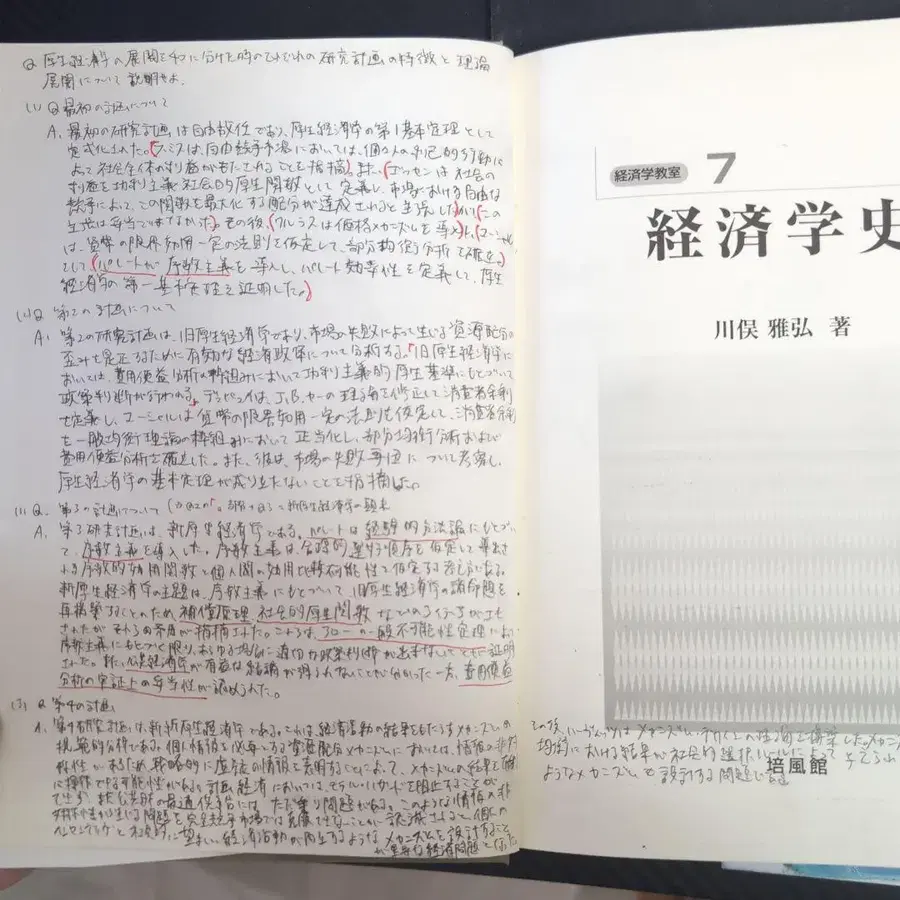 Q 厚生経済学の展開を4つに分けた時のそれぞれの研究計画の特徴と理論
展開について説明せよ.
(1) Q 最初の計画について
A. 最初の研究計画は自由放任であり、厚生経済学の第1基本定理として
定式化された。(スミスは、自由競争市場においては、個々人の利己的行動に
よって社会全体の利益がもたらされることを指摘)。また、(エッセンは社会の
利益を功利主義社会的厚生関数として定義し、市場における自由な
競争によって、この関数を最大化する配分が達成されると主張した)(この
主張は妥当ではなかった)。その後、(ワルラスは価格メカニズムを導入し、(マーシャル
は、貨幣の限界効用一定の法則を仮定して、部分均衡分析を確立。)
そして(パレートが序数主義を導入し、パレート効率性を定義して、厚生
経済学の第一基本定理を証明した。)
Q 第2の計画について
A. 第2の研究計画は、旧厚生経済学であり、市場の失敗によって生じる資源配分の
歪みを是正するために有効な経済政策について分析する。「旧厚生経済学に
おいては、費用便益分析の枠組みにおいて功利主義的厚生基準にもとづいて
政策判断が行われる。デュピュイは、J.B.セーの理論を修正して消費者余剰
を定義し、マーシャルは貨幣の限界効用一定の法則を仮定して、消費者余剰
を一般均衡理論の枠組みにおいて正当化し、部分均衡分析および
費用便益分析を確立した。また、彼は、市場の失敗 について考察し、
厚生経済学の基本定理が成り立たないことを指摘した。
Q. 第3の計画について
A. 第3研究計画は、新厚生経済学である。パレートは経験的方法論にもとづい
て、序数主義を導入した。序数主義は、合理的選好順序を仮定して導出され
る序数的効用関数と個人間の効用比較不可能性を仮定する考え方である。
新厚生経済学の主題は、序数主義にもとづいて、旧厚生経済学の諸命題を
再構築することのため、補償原理、社会的厚生関数などの
されたがそれらの矛盾が指摘された。 アローの一般不可能性定理におい
序数主義にもとづく限り、あらゆる場合に適切な政策判断が出来ないことも証明
された。また、 経済学が有益な結論が得られないことも分かった一方、費用便益
分析の実証上の妥当性が認められた。
(3) Q 第4の計画
A. 第4研究計画は、新新厚生経済学である。これは、経済活動の結果をもたらすメカニズムの
規範的分析である。個人情報を必要とする資源配分メカニズムにおいては、情報の非対
称性があるため、戦略的に虚偽の情報を表明することによって、メカニズムの結果を
に操作できる可能性がある。計画経済においては、モラル・ハザードを阻止することが
できず、また公共財の最適供給には、ただ乗り問題がある。このような情報の非
対称性から生じる問題を完全競争市場では克服できないことが認識されると、個人の
インセンティブと 望ましい経済活動が両立するようなメカニズムを設計すること
が重要な経済問題となった
経済学教室 7
経済学史
川俣 雅弘 著
その後、ハーヴィッツはメカニズム
均衡における結果が社会的選択
ようなメカニズムを設計する問題
培風館